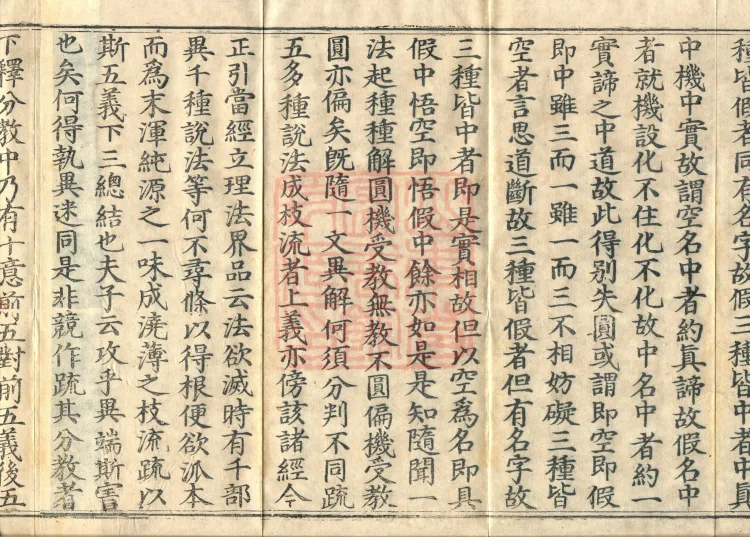 種皆假者同有名字故假三種皆中者中真
中機中實故謂空名中者約真諦故假名中
者就機設化不住化不化故中名中者約一
實諦之中道故此得別失圓或謂即空即假
即中雖三而一雖一而三不相妨礙三種皆
空者言思道斷故三種皆假者但有名字故
三種皆中者即是實相故但以空為名即具
假中悟空即悟假中餘亦如是是知隨聞一
法起種種解圓機受教無教不圓偏機受教
圓亦偏矣既隨一文異解何須分判不同疏
五多種說法成枝流者上義亦傍該諸經今
正引當經立理法界品云法欲滅時有千部
異千種說法等何不尋條以得根便欲泒本
而為末渾純源之一味成澆薄之枝流疏以
斯五義下三總結也夫子云攻乎異端斯害
也矣何得執異迷同是非競作疏其分教者
下釋分教中乃有十意前五對前五義後五